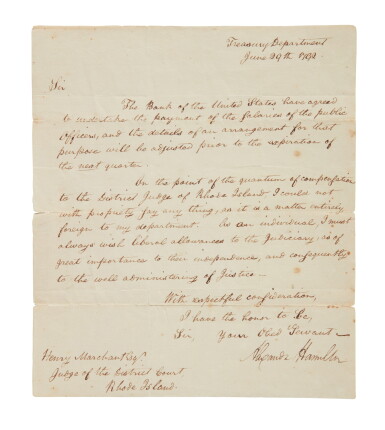 Treasury Department
June 29th 1792.
Sir
The Bank of the United States have agreed
to undertake the payment of the salaries of the public
officers, and the details of an arrangement for that
purpose will be adjusted prior to the expiration of
the next quarter.
On the point of the quantum of compensation
to the District Judge of Rhode Island I could not
with propriety say any thing, as it is a matter entirely
foreign to my department. As an individual, I must
always wish liberal allowances to the Judiciary; as of
great importance to their independence, and consequently
to the well administering of Justice—
With respectful consideration,
I have the honor to be,
Sir Your Obed Servant—
Alexander Hamilton
Henry Marchant Esqr.
Judge of the District Court
Rhode Island.